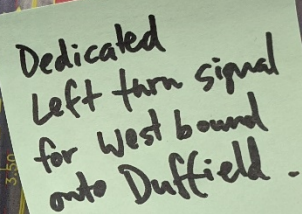 Dedicated
Left turn signal
for west bound
onto Duffield.
3.50